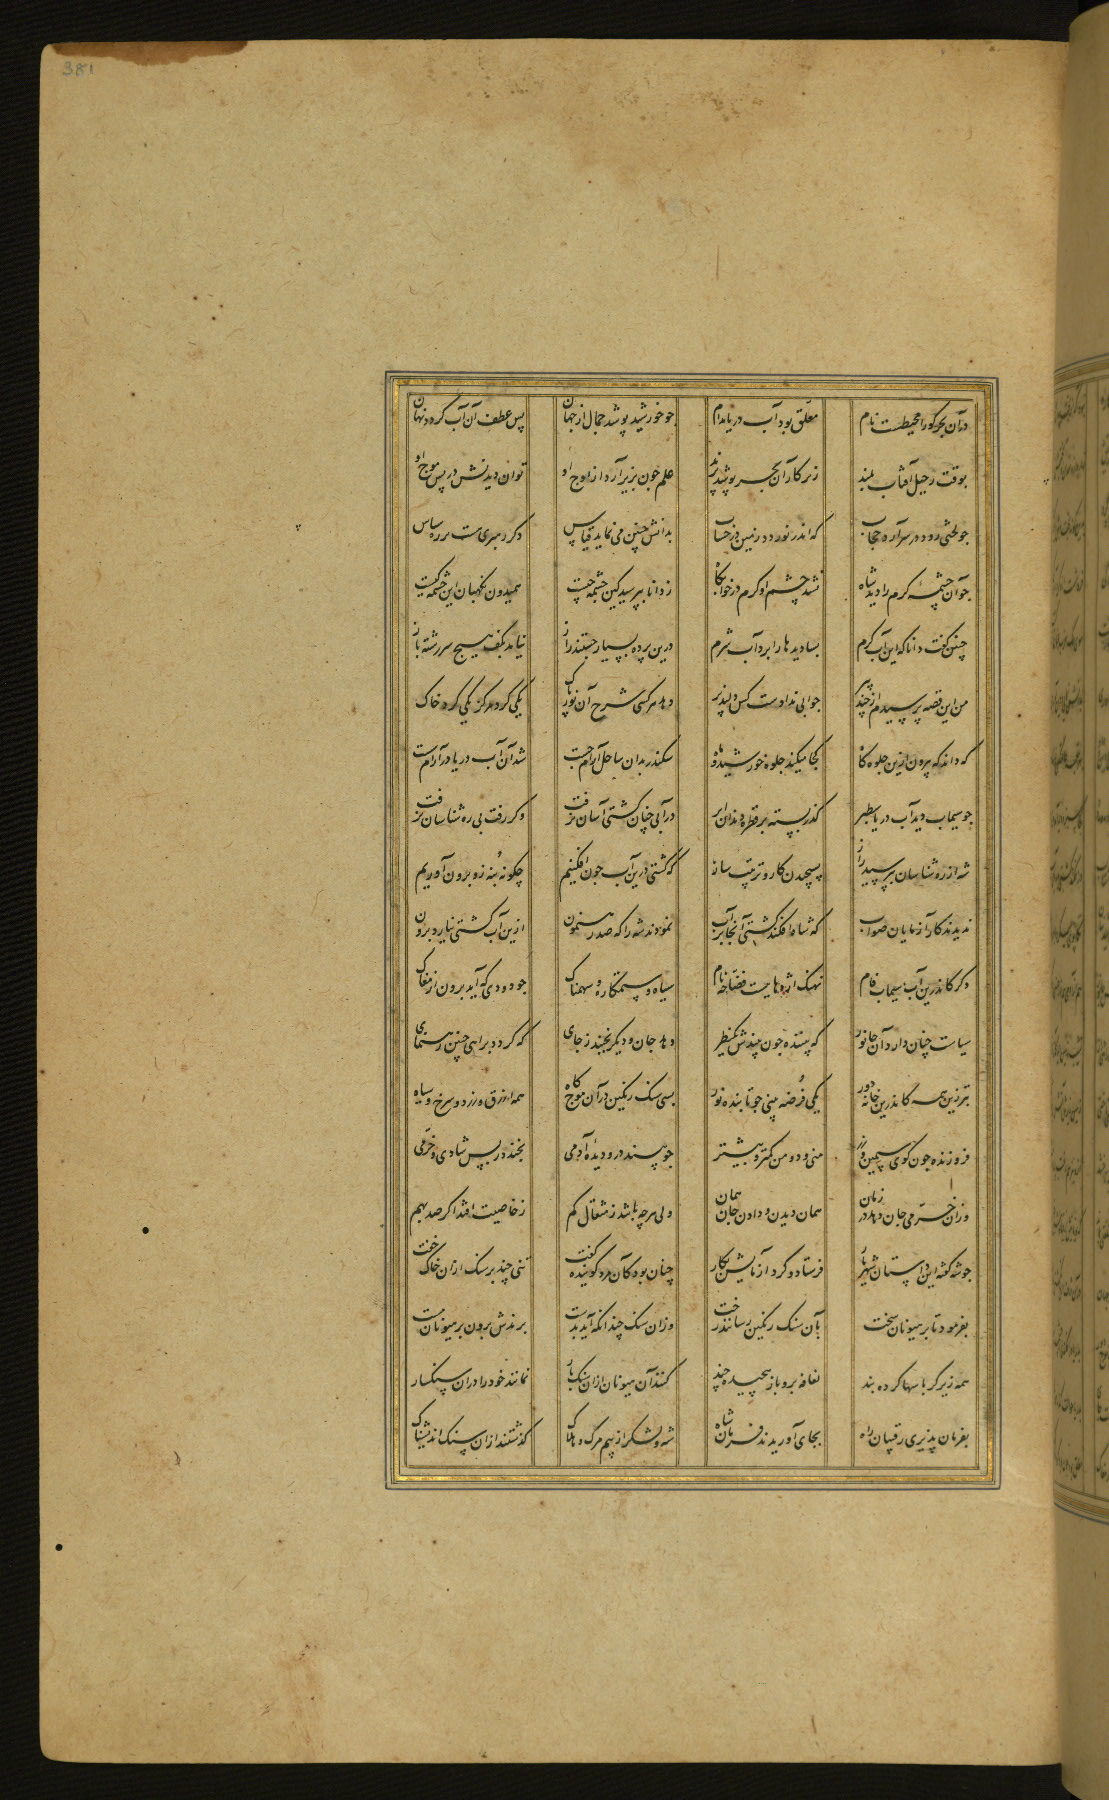 381
در آن بحر کورا محیطست نام معلق بود آب دریا مدام چو خورشید پوشد جمال از جهان پس عطف آن آب گردد نهان
بوقت رحیل آفتاب بلند ز پرگار آن بحر پوشد پرند علم چون بزیر آرد از اوج او توان دیدنش در پس موج او
چو لختی رود در سر آرد حجاب که اندر نوردد زمین در حساب بدانش چنین می نماید قیاس دگر رهبری هست بر ره شناس
چو آن چشمه گرم را دید شاه نشد چشم او گرم در خوابگاه ز دانا بپرسید کین چشمه چیست همیدون نگهبان این چشمه کیست
چنین گفت دانا که این آب گرم بسا دیدها را برد آب شرم درین پرده بسیار جستند راز نیامد بکف هیچ سررشته باز
من این قصه پرسیدم از چند پیر جوابی ندادست کس دلپذیر دهد هر کسی شرح آن نور پاک یکی گرد مرکز یکی گرد خاک
که داند که بیرون ازین جلوه گاه کجا میکند جلوه خورشید و ماه سکندر بدان ساحل آرام جست شد آن آب دریا در آرام سست
چو سیماب دید آب دریا سطبر گذر بسته بر قطره دزدان ابر در آبی چنان کشتی آسان نرفت وگر رفت بی ره شناسان نرفت
شه از ره شناسان بپرسید راز پسیچیدن کار و ترتیب ساز که کشتی درین آب چون افکنیم چگونه بنه زو برون آوریم
ندیدند کارآزمایان صواب که شاه افکند کشتی آنجا بر آب نمودند شه را که صد رهنمون ازین آب کشتی نیارد برون
دگر کاندرین آب سیماب فام نهنگ اژدهاییست قصاصه نام سیاه و ستمکاره و سهمناک چو دودی که آید برون از مغاک
سیاست چنان دارد آن جانور که بیننده چون بیندش یکنظر دهد جان و دیگر نجنبد ز جای که گردد براهی چنین رهنمای
بتر زین همه کاندرین خانه دور یکی فرضه بینی چو تابنده نور بسی سنگ رنگین در آن موج گاه همه ازرق و زرد و سرخ و سیاه
فروزنده چون گوی سیمین ز دور منی و دو من کمتر و بیشتر چو بیند درو دیده آدمی بخندد ز بس شادی و خرمی
وزان خرمی جان دهد در زمان همان دیدن و دادن جان همان ولی هرچه باشد ز مثقال کم ز خاصیت افتد اگر صد بهم
چو شد گفته این داستان شهریار فرستاد و کرد آزمایش بکار چنان بود کان مرد گوینده گفت تنی چند بر سنگ ازان خاک خفت
بفرمود تا بر هیونان سخت بآن سنگ رنگین رسانند رخت وزان سنگ چندانکه آید بدست برندش برون بر هیونان مست
همه زیر کرباسها کرده بند لفافه برو باز پیچیده چند کنند آن هیونان ازان سنگ بار نمانند خود را در آن سنگسار
بفرمان پذیری رقیبان راه بجای آوریدند فرمان شاه شه و لشکر از بیم مرگ و هلاک گذشتند ازان سنگ اندیشناک